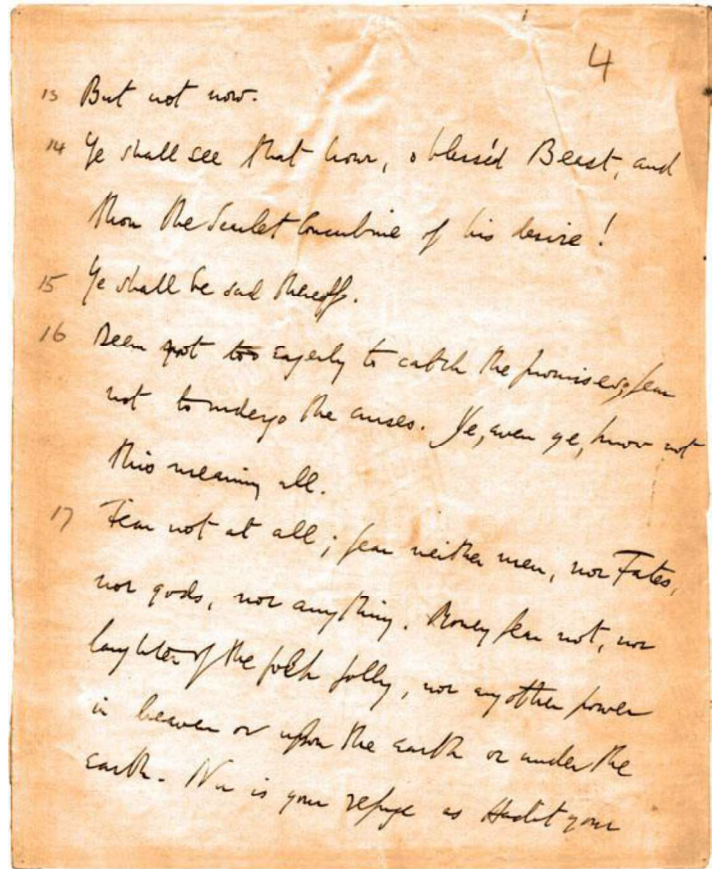 4
13 But not now.
14 Ye shall see that hour, o blesséd Beast, and
thou the Scarlet Concubine of his desire!
15 Ye shall be sad thereof.
16 Deem not too eagerly to catch the promises; fear
not to undergo the curses. Ye, even ye, know not
this meaning all.
17 Fear not at all; fear neither men, nor Fates,
nor gods, nor anything. Money fear not, nor
laughter of the folk folly, nor any other power
in heaven or upon the earth or under the
earth. Nu is your refuge as Hadit your